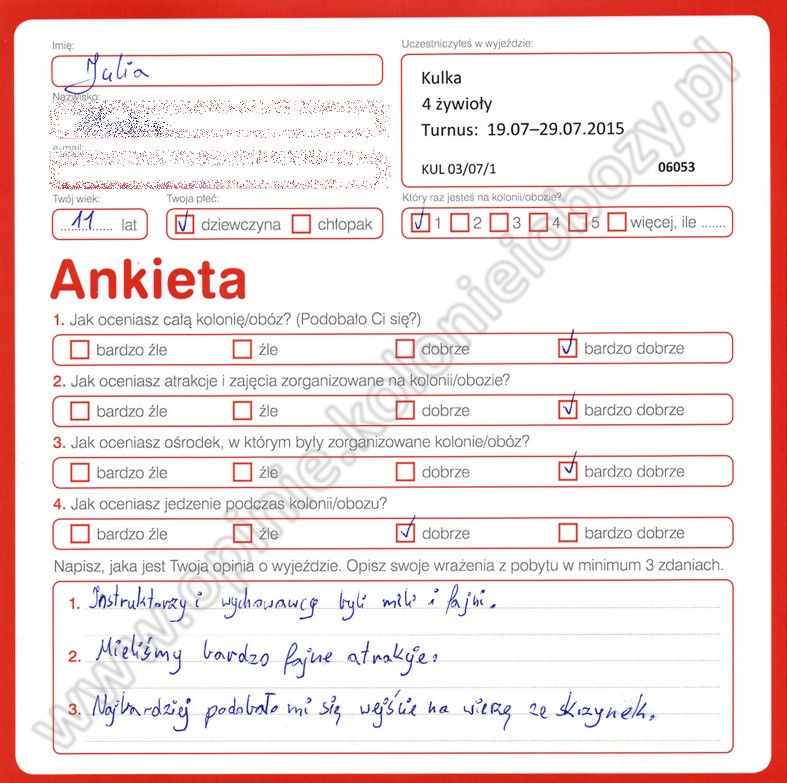 Imię:
Julia
Nazwisko:
e-mail:
Uczestniczyłeś w wyjeździe:
Kulka
4 żywioły
Turnus: 19.07–29.07.2015
KUL 03/07/1 06053
Twój wiek:
11 lat
Twoja płeć:
dziewczyna chłopak
Który raz jesteś na kolonii/obozie?
1 2 3 4 5 więcej, ile .......
Ankieta
1. Jak oceniasz całą kolonię/obóz? (Podobało Ci się?)
bardzo źle źle dobrze bardzo dobrze
2. Jak oceniasz atrakcje i zajęcia zorganizowane na kolonii/obozie?
bardzo źle źle dobrze bardzo dobrze
3. Jak oceniasz ośrodek, w którym były zorganizowane kolonie/obóz?
bardzo źle źle dobrze bardzo dobrze
4. Jak oceniasz jedzenie podczas kolonii/obozu?
bardzo źle źle dobrze bardzo dobrze
Napisz, jaka jest Twoja opinia o wyjeździe. Opisz swoje wrażenia z pobytu w minimum 3 zdaniach.
1. Instruktorzy i wychowawcy byli mili i fajni.
2. Mieliśmy bardzo fajne atrakcje.
3. Najbardziej podobało mi się wejście na wieżę ze skrzynek.
www.opinie.kolonieiobozy.pl